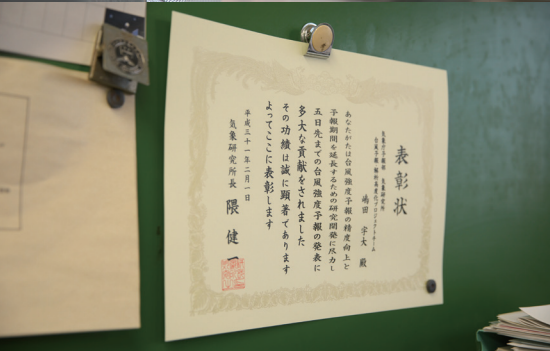 表彰状
気象庁予報部 気象研究所
台風予報
プロジェクトチーム
嶋田 宇大 殿
あなたがたは台風強度予報の精度向上と
予報期間を延長するための研究開発に尽力し
五日先までの台風強度予報の発表に
多大な貢献をされました
その功績は誠に顕著であります
よってここに表彰します
平成三十一年二月一日
気象研究所長 隈 健